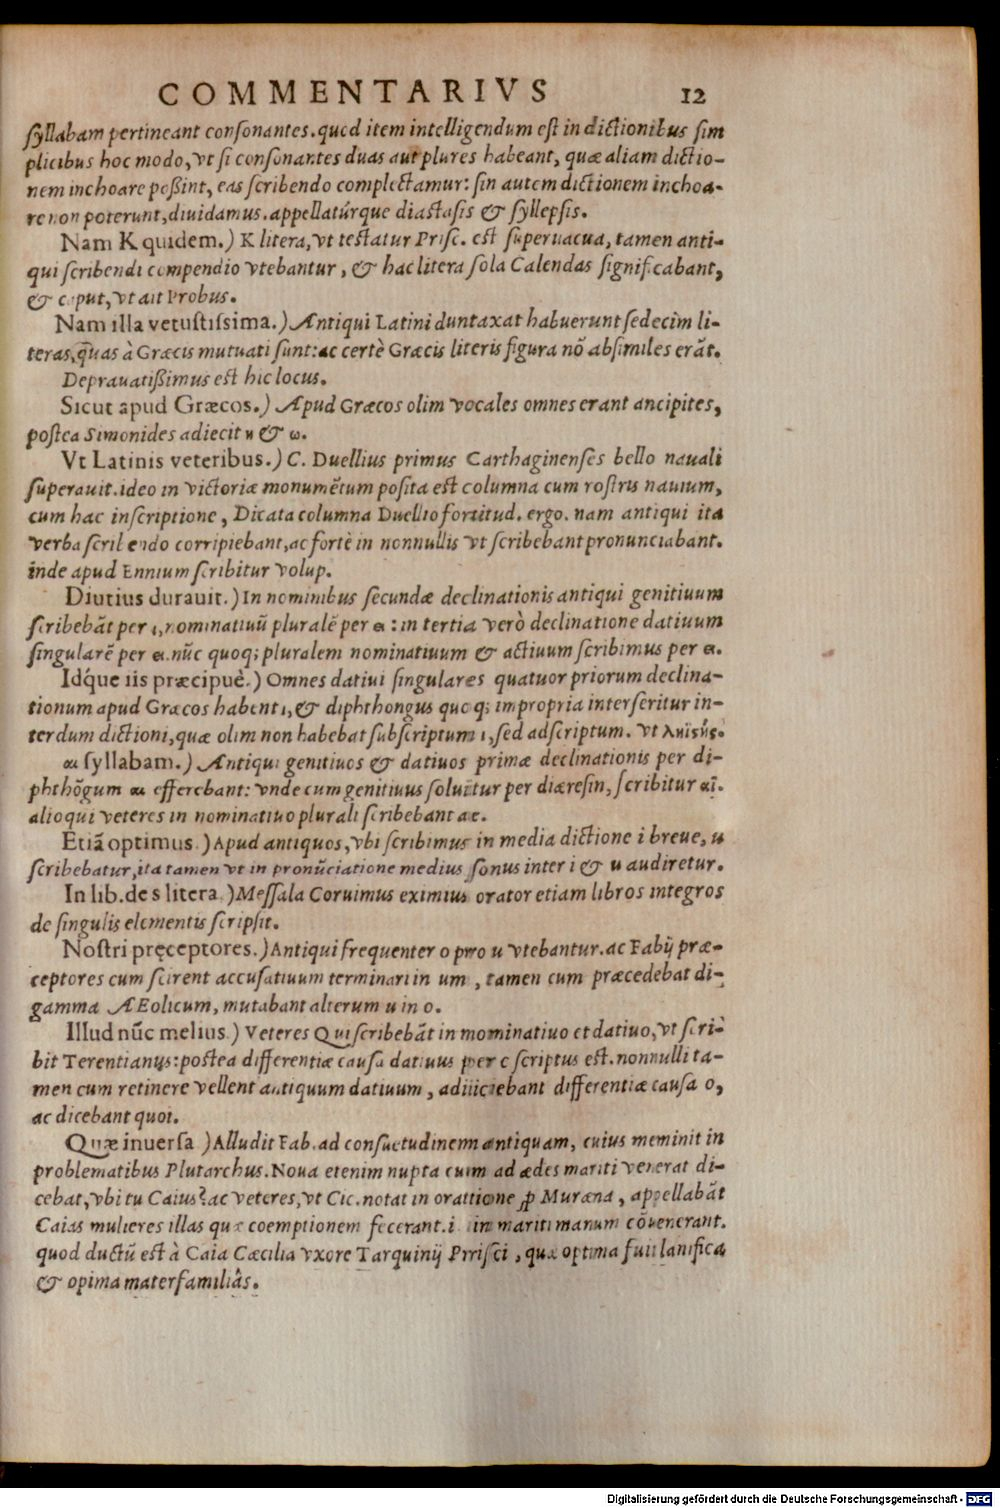 COMMENTARIVS 12
ſyllabam pertineant conſonantes.quod item intelligendum eſt in dictionibus ſim
plicibus hoc modo, vt ſi conſonantes duas aut plures habeant, quæ aliam dictio-
nem inchoare poßint, eas ſcribendo complectamur: ſin autem dictionem inchoa-
re non poterunt, diuidamus.appellatúrque diaſtaſis & ſyllepſis.
Nam K quidem.) K litera, vt teſtatur Priſc. eſt ſuperuacua, tamen anti-
qui ſcribendi compendio vtebantur, & hac litera ſola Calendas ſignificabant,
& caput, vt ait Probus.
Nam illa vetuſtiſsima.) Antiqui Latini duntaxat habuerunt ſedecim li-
teras, q̃uas à Græcis mutuati ſunt: ac certè Græcis literis figura nõ abſimiles erãt.
Deprauatißimus eſt hic locus.
Sicut apud Græcos.) Apud Græcos olim vocales omnes erant ancipites,
poſtea Simonides adiecit η & ω.
Vt Latinis veteribus.) C. Duellius primus Carthaginenſes bello nauali
ſuperauit.ideo in victoriæ monumẽtum poſita eſt columna cum roſtris nauium,
cum hac inſcriptione, Dicata columna Duellio fortitud. ergo. nam antiqui ita
verba ſcribendo corripiebant, ac fortè in nonnullis vt ſcribebant pronunciabant.
inde apud Ennium ſcribitur volup.
Diutius durauit.) In nominibus ſecundæ declinationis antiqui genitiuum
ſcribebãt per ι, nominatiuũ pluralẽ per ει: in tertia verò declinatione datiuum
ſingularẽ per ει. nũc quoq; pluralem nominatiuum & actiuum ſcribimus per ει.
Idq́ue iis præcipuè.) Omnes datiui ſingulares quatuor priorum declina-
tionum apud Græcos habent ι, & diphthongus quoq; impropria interſeritur in-
terdum dictioni, quæ olim non habebat ſubſcriptum ι, ſed adſcriptum. vt
αι ſyllabam.) Antiqui genitiuos & datiuos primæ declinationis per di-
phthõgum αι efferebant: vnde cum genitiuus ſoluitur per diæreſin, ſcribitur αϊ.
alioqui veteres in nominatiuo plurali ſcribebant ae.
Etiã optimus.) Apud antiquos, vbi ſcribimus in media dictione i breue, u
ſcribebatur, ita tamen vt in pronũciatione medius ſonus inter i & u audiretur.
In lib. de s litera.) Meſſala Coruimus eximius orator etiam libros integros
de ſingulis elementis ſcripſit.
Noſtri pręceptores.) Antiqui frequenter o pro u vtebantur. ac Fabij præ-
ceptores cum ſcirent accuſatiuum terminari in um, tamen cum præcedebat di-
gamma ÆEolicum, mutabant alterum u in o.
Illud nũc melius.) Veteres Qui ſcribebãt in mominatiuo et datiuo, vt ſcri-
bit Terentianus: poſtea differentiæ cauſa datiuus per c ſcriptus eſt. nonnulli ta-
men cum retinere vellent antiquum datiuum, adiiciebant differentiæ cauſa o,
ac dicebant quoi.
Quæ inuerſa ) Alludit Fab. ad conſuetudinem antiquam, cuius meminit in
problematibus Plutarchus. Noua etenim nupta cum ad ædes mariti venerat di-
cebat, vbi tu Caius? ac veteres, vt Cic. notat in orattione ꝓ Muræna, appellabãt
Caias mulieres illas quæ coemptionem fecerant. i. in mariti manum cõuenerant.
quod ductũ eſt à Caia Cæcilia vxore Tarquinij Prriſci, quæ optima fuit lanifica
& opima materfamiliâs.
Digitalisierung gefördert durch die Deutsche Forschungsgemeinschaft - DFG